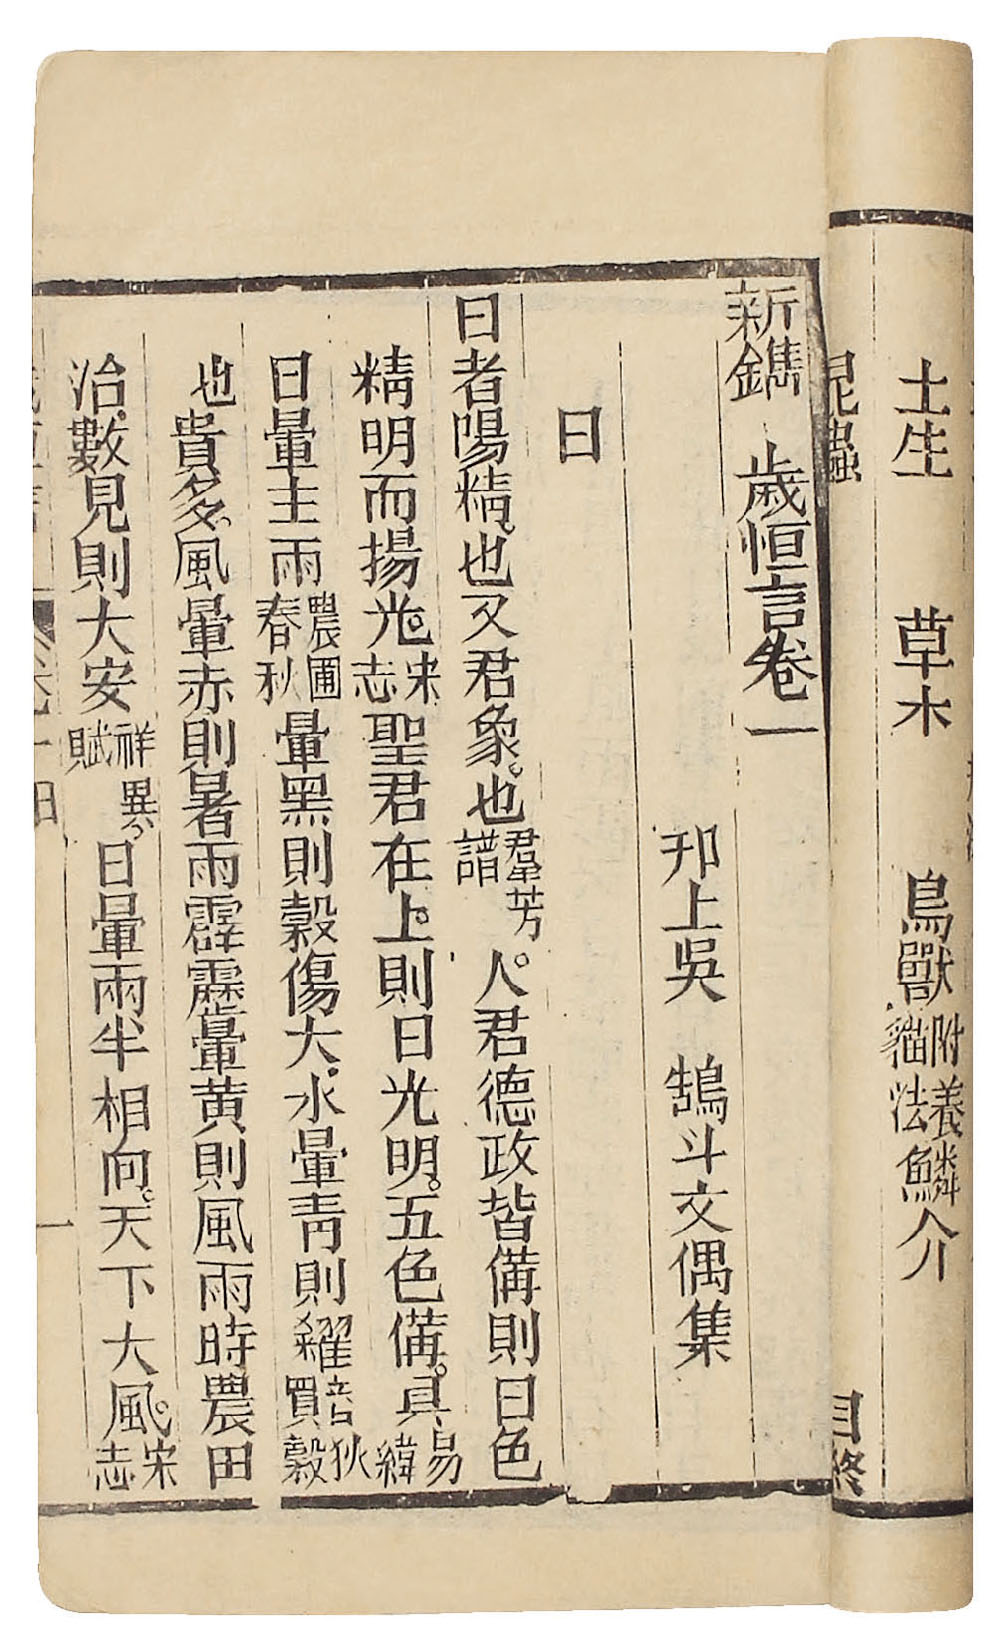 土生　草木　鳥獸附養貓法鱗介
昆蟲　目終
新鐫　歲恒言卷一
邗上吳　鵠斗文偶集
日
日者陽精。也又君象。也羣芳譜人。君德政皆備則日色
精明而揚光。宋志聖君在上。則日光明。五色備。具易緯
日暈主雨農圃春秋暈黑則穀傷大。水暈青則糴音狄買穀
也貴多、風暈赤則暑雨霹靂暈黄則風雨時農田
治。數見則大安祥異賦、日暈兩半相向。天下大風。宋志